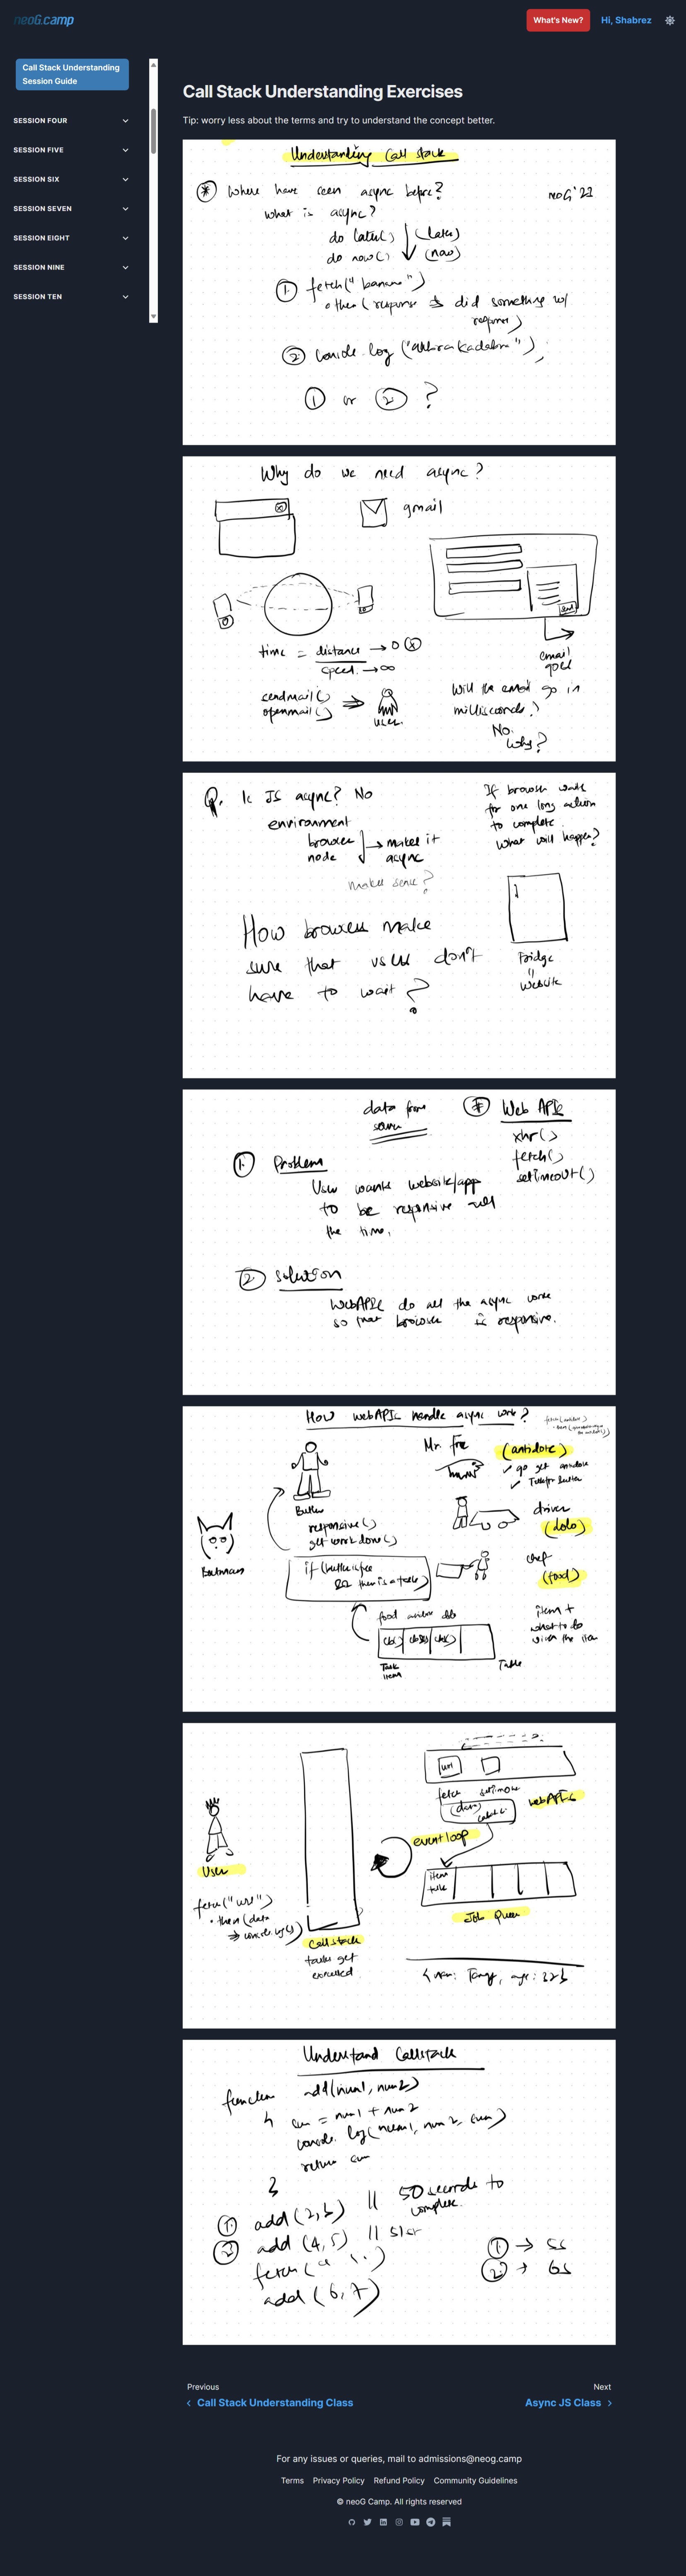 neoG.camp
What's New?
Hi, Shabrez
Call Stack Understanding
Session Guide
SESSION FOUR
SESSION FIVE
SESSION SIX
SESSION SEVEN
SESSION EIGHT
SESSION NINE
SESSION TEN
Call Stack Understanding Exercises
Tip: worry less about the terms and try to understand the concept better.
Understanding Call Stack
* Where have seen async before?
neoG'22
What is async?
do later() (later)
do now() (now)
1. fetch("banana")
.then (response => did something w/
response)
2 console.log ("akhirakadabra");
1 or 2 ?
Why do we need async?
gmail
time = distance → 0
speed → ∞
send
email
goes
sendmail()
openmail() ⇒ user
Will the email go in
milliseconds?
No.
Why?
Q. Is JS async? No
environment
browser
node → makes it
async
makes sense?
If browser waits
for one long action
to complete.
What will happen?
How browsers make
sure that users don't
have to wait?
Fridge
=
website
data from
server
* Web APIs
xhr()
fetch()
setTimeout()
1. Problem
User wants website/app
to be responsive all
the time.
2 Solution
WebAPIs do all the async work
so that browser is responsive.
How webAPIs handle async work?
Mr. Fox
(antidote)
✓ go get antidote
Butler
responsive()
get work done()
driver
(dolo)
chef
(food)
Batman
if (butler is free
&& there is a task)
item +
what to do
with the item
Task
item
Table
url
fetch setTimeout
(data)
webAPIs
event loop
User
fetch("url")
.then(data
⇒ console.log())
Call stack
tasks get
executed
item
task
Job Queue
Understand Callstack
function add(num1, num2)
{ sum = num1 + num2
console.log(num1, num2, sum)
return sum
}
1. add(2,3) || 50 seconds to
complete.
2. add (4,5)
fetch(" ")
add (6,7)
1. → 5s
2. → 6s
Previous
Call Stack Understanding Class
Next
Async JS Class
For any issues or queries, mail to admissions@neog.camp
Terms Privacy Policy Refund Policy Community Guidelines
© neoG Camp. All rights reserved